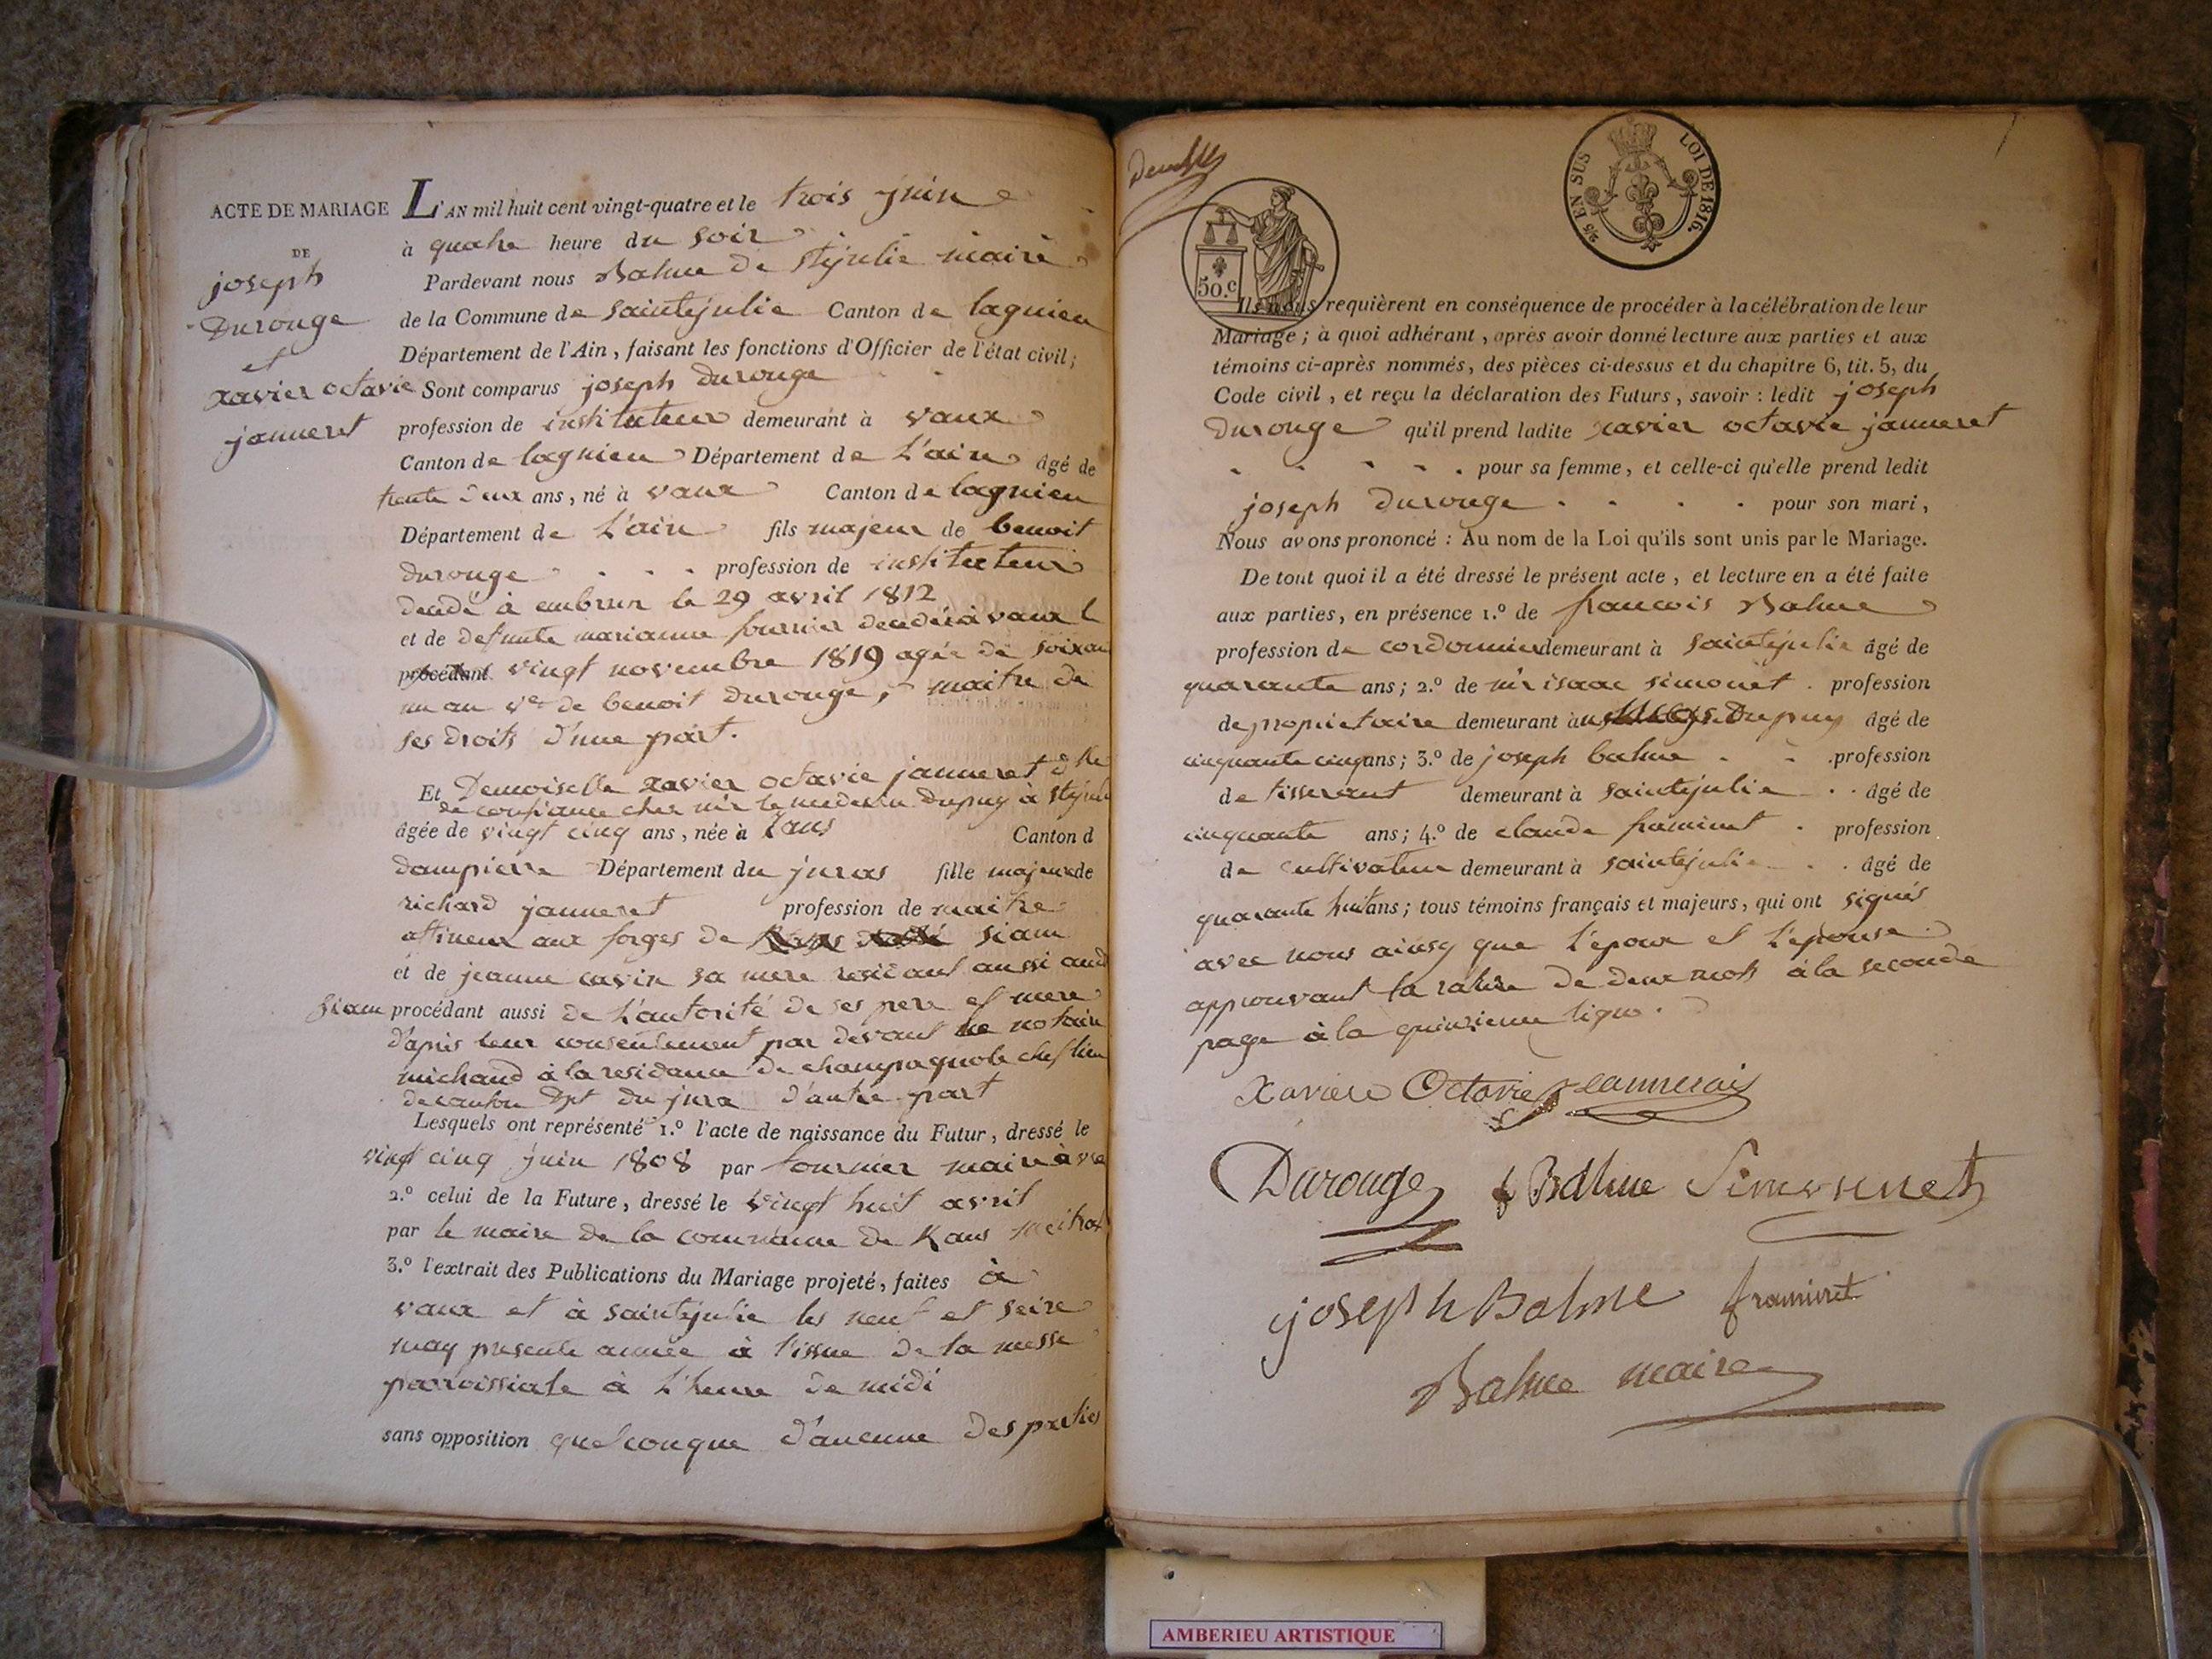 ACTE DE MARIAGE
DE
joseph
Durouge
et
xavier octavie
janneret
L'AN mil huit cent vingt-quatre et le trois juin
à quatre heure du soir
Pardevant nous Balme de stejulie maire
de la Commune de saintejulie Canton de lagnieu
Département de l'Ain, faisant les fonctions d'Officier de l'état civil;
Sont comparus joseph durouge
profession de instituteur demeurant à vaux
Canton de lagnieu Département de L'ain âgé de
trente deux ans, né à vaux Canton de lagnieu
Département de L'ain fils majeur de benoit
durouge profession de instituteur
decédé à embrun le 29 avril 1812
et de defunte marianne fournier decédéé à vaux l
procédant vingt novembre 1819 agée de soixan
un an ve de benoit durouge, maitre de
ses droits d'une part.
Et Demoiselle xavier octavie janneret dlle
de confiance cher mr le medecin dupuy à stejulie
âgée de vingt cinq ans, née à Kans Canton d
dampierre Département du juras fille majeure de
richard janneret profession de maitre
affineur aux forges de siam
et de jeanne cavin sa mere residant aussi aud
siam procédant aussi de L'autorité de ses pere et mere
d'apres leur consentement par devant me notaire
michaud à la residance de champagnole chef lieu
de canton dpt du jura d'autre part
Lesquels ont représenté 1.º l'acte de naissance du Futur, dressé le
vingt cinq juin 1808 par fournier maire à
2.º celui de la Future, dressé le vingt huit avril
par le maire de la commune de Kans
3.º l'extrait des Publications du Mariage projeté, faites à
vaux et à saintejulie les neuf et seize
may presente année à l'issue de la messe
parroissiale à L'heure de midi
sans opposition quelconque d'aucune des parties
50.c
25 EN SUS
LOI DE 1816.
Ils nous requièrent en conséquence de procéder à la célébration de leur
Mariage; à quoi adhérant, après avoir donné lecture aux parties et aux
témoins ci-après nommés, des pièces ci-dessus et du chapitre 6, tit. 5, du
Code civil, et reçu la déclaration des Futurs, savoir : ledit joseph
durouge qu'il prend ladite xavier octavie janneret
pour sa femme, et celle-ci qu'elle prend ledit
joseph durouge pour son mari,
Nous avons prononcé : Au nom de la Loi qu'ils sont unis par le Mariage.
De tout quoi il a été dressé le présent acte, et lecture en a été faite
aux parties, en présence 1.º de francois Balme
profession de cordonnier demeurant à saintejulie âgé de
quarante ans; 2.º de mr isaac simonet profession
de propietaire demeurant à dupuy âgé de
cinquante cinq ans; 3.º de joseph balme profession
de tisserant demeurant à saintejulie âgé de
cinquante ans; 4.º de claude framinet profession
de cultivateur demeurant à saintejulie âgé de
quarante huit ans; tous témoins français et majeurs, qui ont signés
avec nous ainsy que l'epoux et l'epouse
approuvant la rature de deux mots à la seconde
page à la quinzieme ligne.
Xaviere Octavie Jeannerais
Durouge f Balme Simonnet
joseph Balme framinet
Balme maire
AMBERIEU ARTISTIQUE